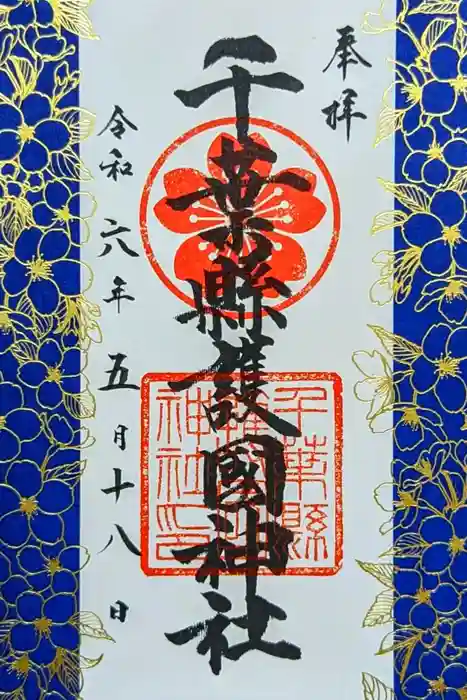 奉拝
千葉縣護國神社
令和六年五月十八日
千葉縣
護國
神社印